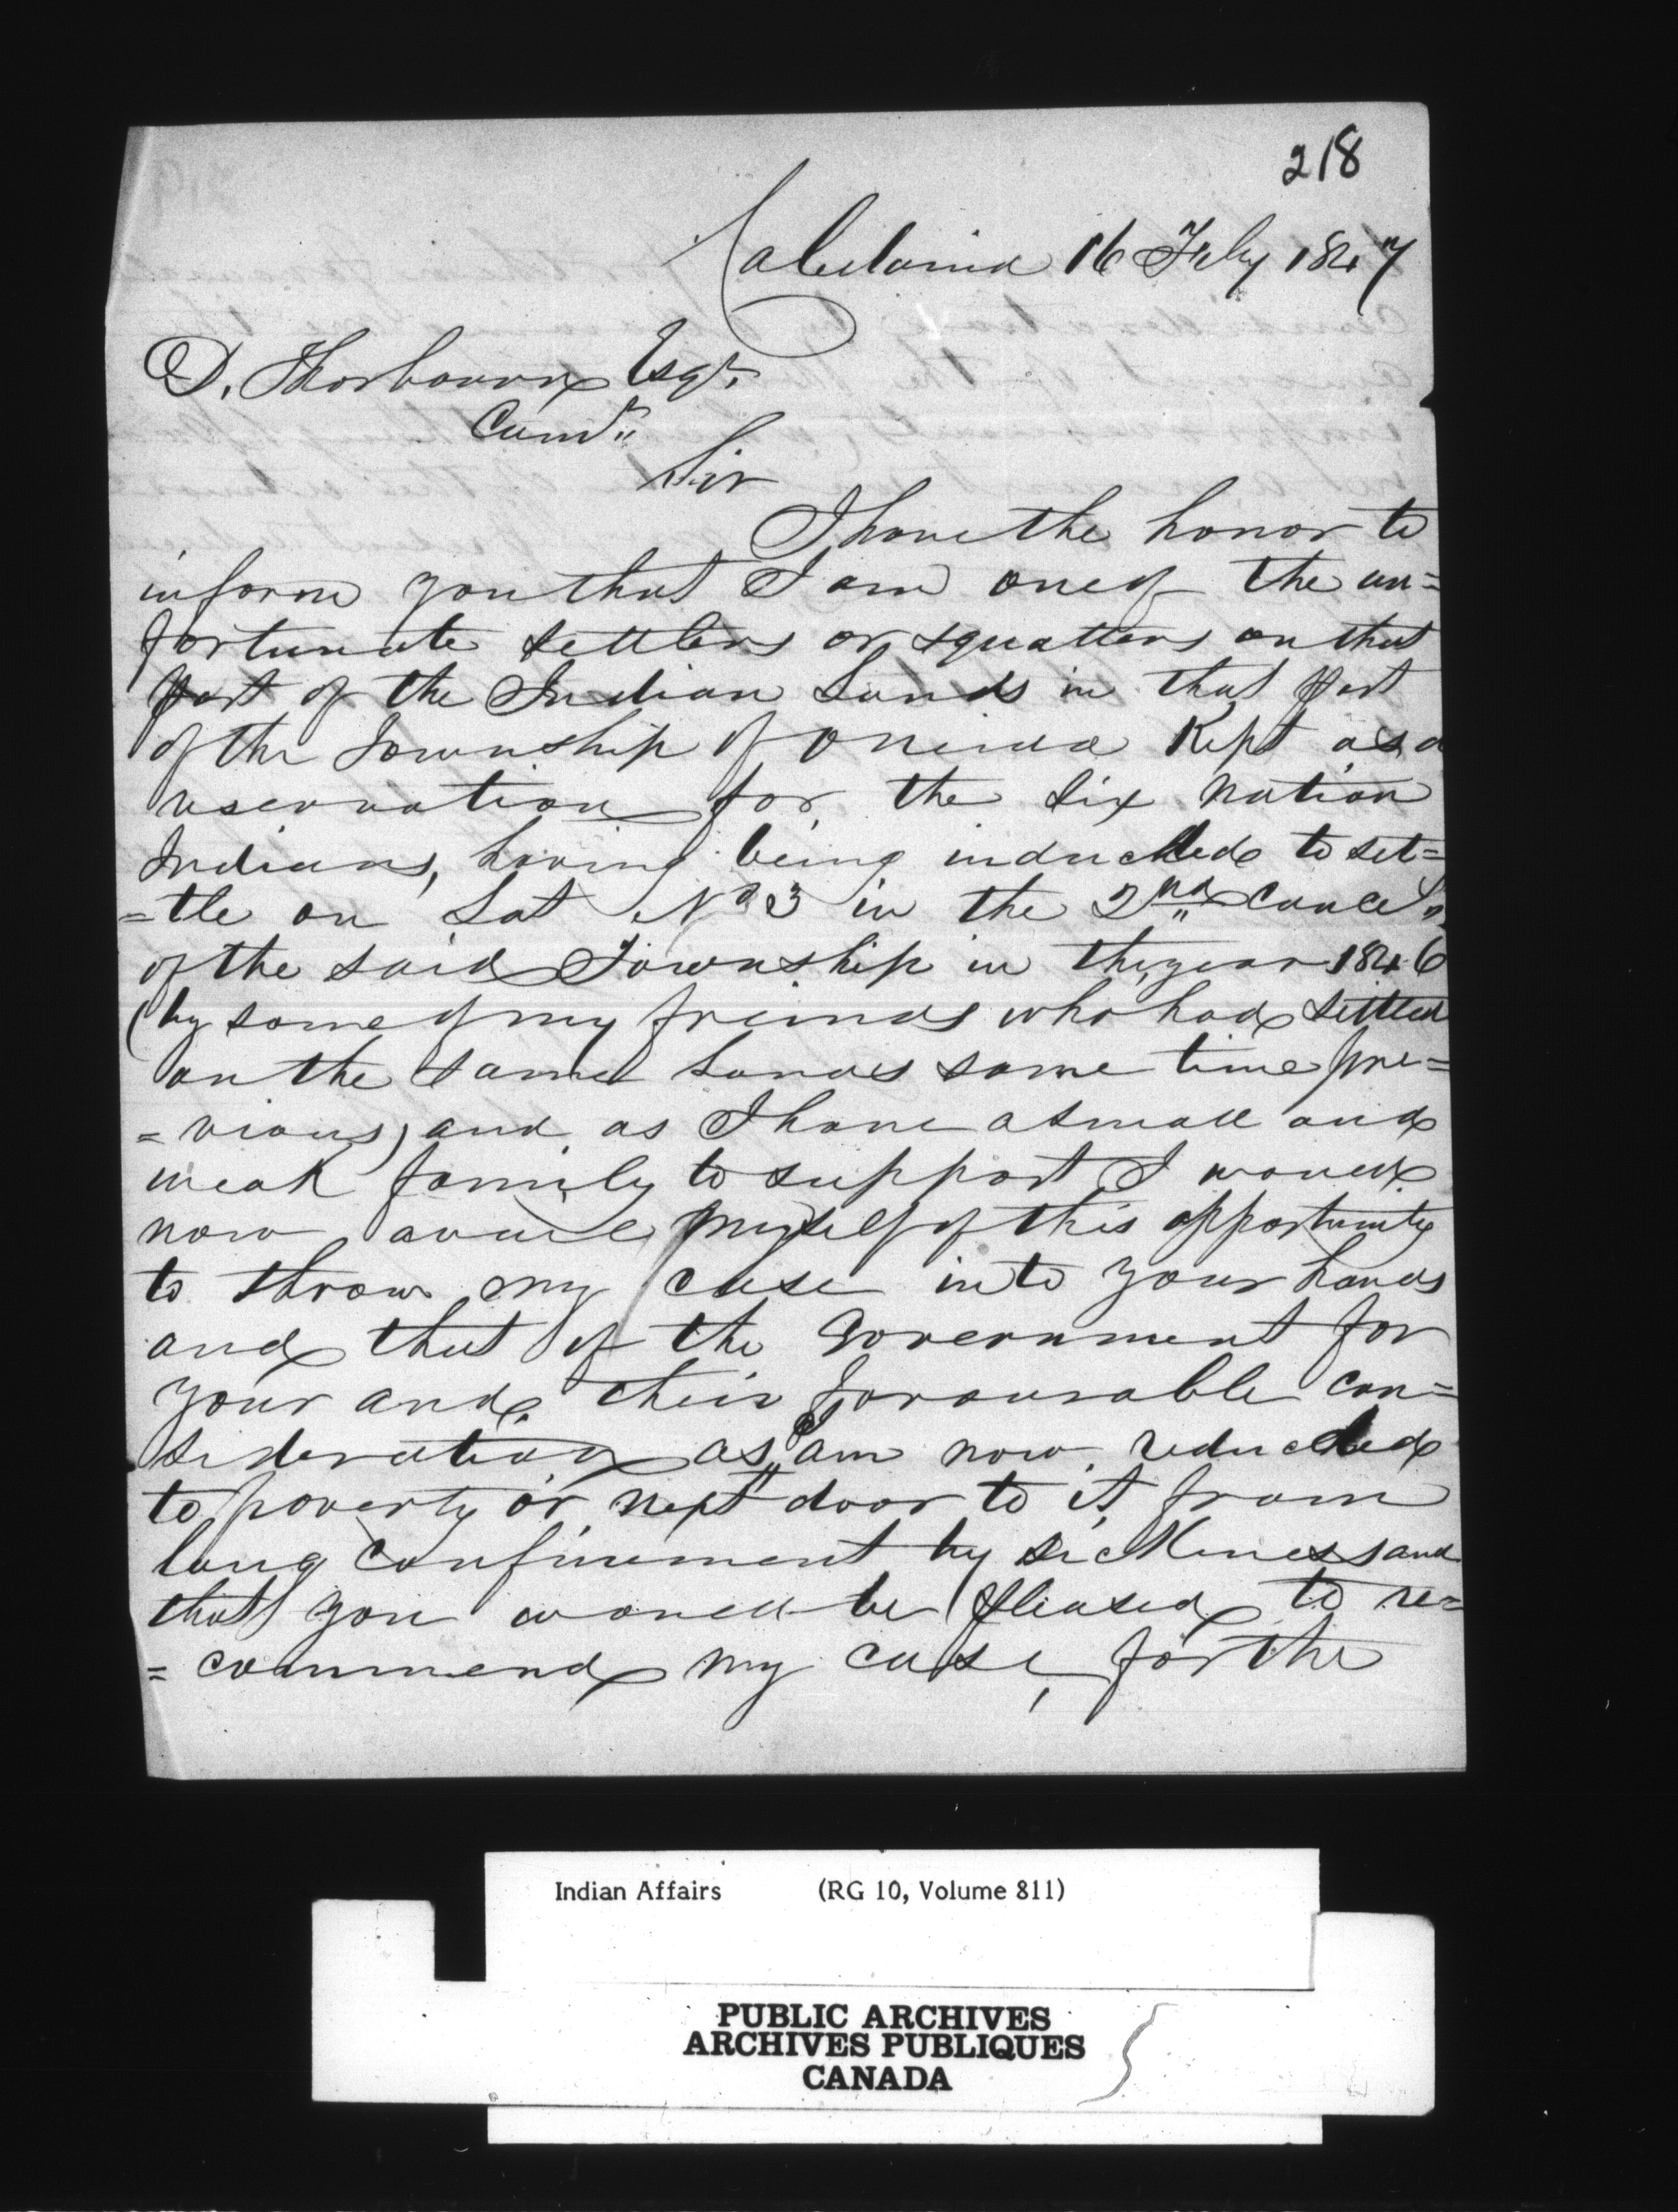 218
Caledonia 16 Feby 1847
D. Thorbourn Esqr.
Comr.
Sir
I have the honor to
inform you that I am one of the un=
fortunate settlers or squatters on that
part of the Indian Lands in that part
of the Township of Oneida Kept as a
reservation for the Six Nation
Indians, having being induced to set=
=tle on Lot No 3 in the 2nd Conces
of the said Township in the year 1846
(by some of my friends who had settled
on the same Lands some time pre=
=vious) and as I have a small and
weak family to support I would
now avail myself of this opportunity
to throw my case into your hands
and that of the Government for
your and their favourable con=
sideration as I am now reduced
to poverty or next door to it from
long confinement by sickness and
that you would be pleased to re=
=commend my case, for the
Indian Affairs (RG 10, Volume 811)
PUBLIC ARCHIVES
ARCHIVES PUBLIQUES
CANADA